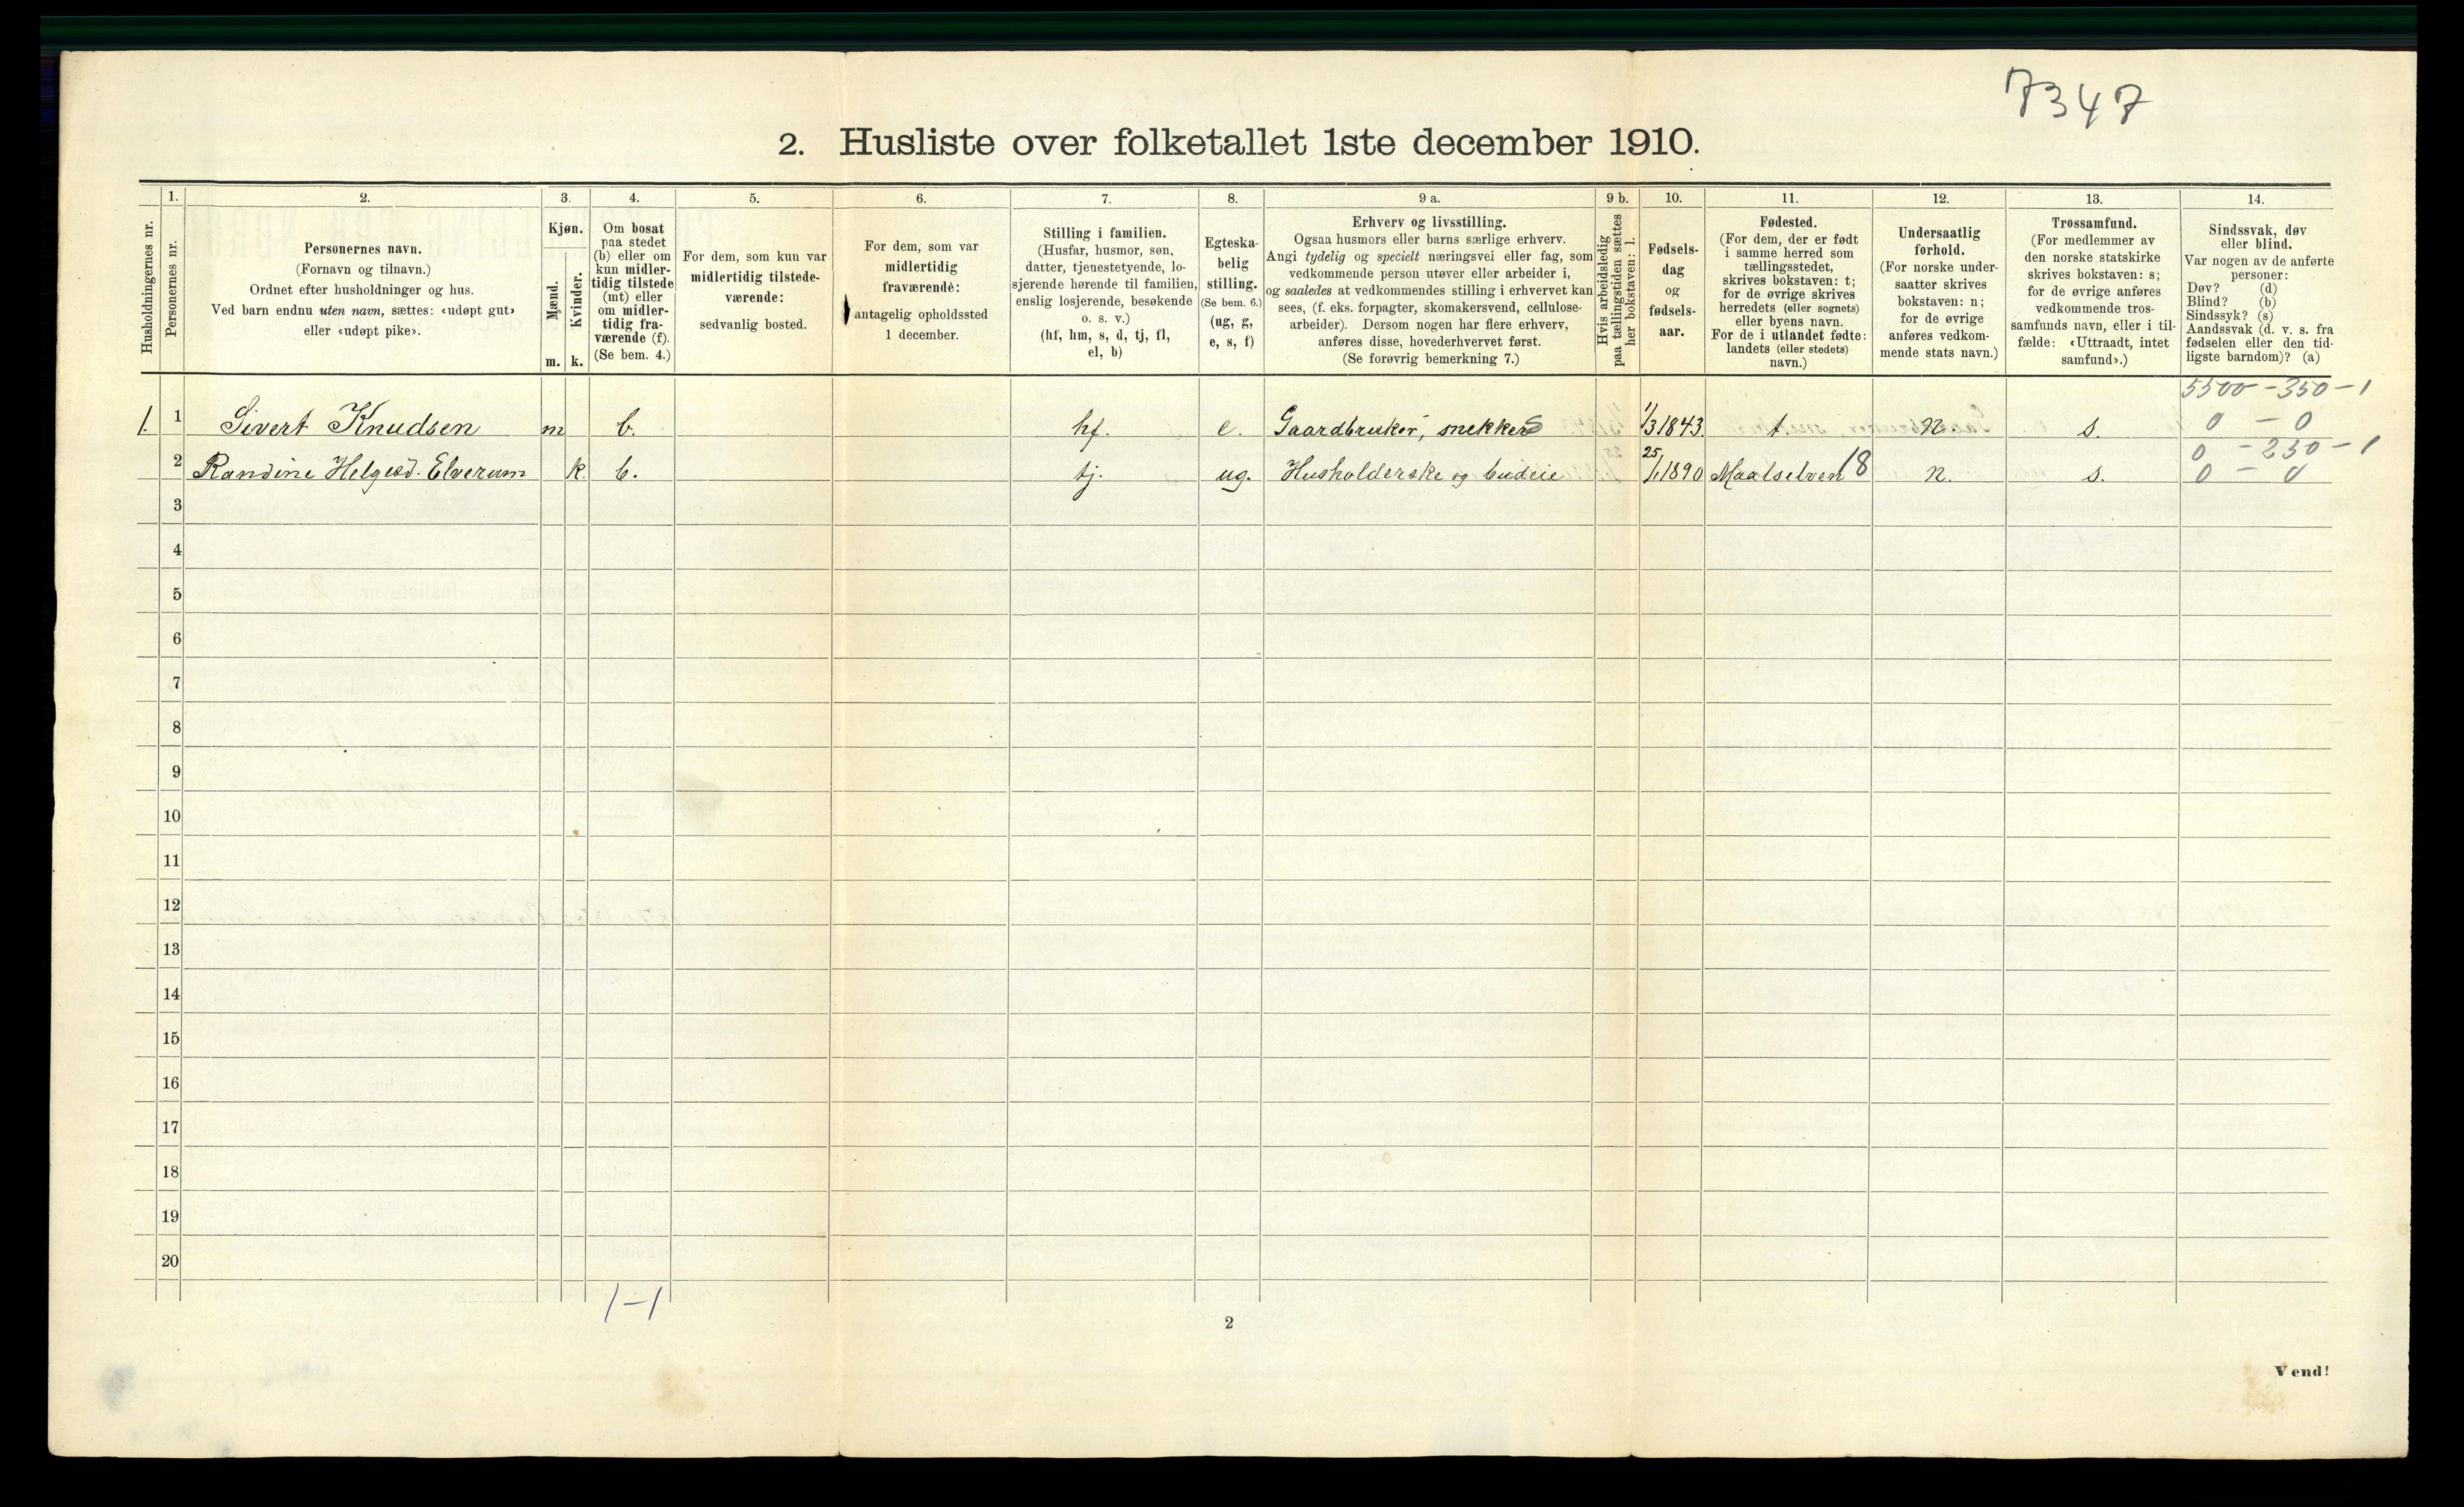 7347
2. Husliste over folketallet 1ste december 1910.
1. 2. 3. 4. 5. 6. 7. 8. 9 a. 9 b. 10. 11. 12. 13. 14.
Husholdningernes nr.
Personernes nr.
Personernes navn.
(Fornavn og tilnavn.)
Ordnet efter husholdninger og hus.
Ved barn endnu uten navn, sættes: «udøpt gut»
eller «udøpt pike».
Kjøn.
Mænd.
m.
Kvinder.
k.
Om bosat
paa stedet
(b) eller om
kun midler-
tidig tilstede
(mt) eller
om midler-
tidig fra-
værende (f).
(Se bem. 4.)
For dem, som kun var
midlertidig tilstede-
værende:
sedvanlig bosted.
For dem, som var
midlertidig
fraværende:
antagelig opholdssted
1 december.
Stilling i familien.
(Husfar, husmor, søn,
datter, tjenestetyende, lo-
sjerende hørende til familien,
enslig losjerende, besøkende
o. s. v.)
(hf, hm, s, d, tj, fl,
el, b)
Egteska-
belig
stilling.
(Se bem. 6.)
(ug, g,
e, s, f)
Erhverv og livsstilling.
Ogsaa husmors eller barns særlige erhverv.
Angi tydelig og specielt næringsvei eller fag, som
vedkommende person utøver eller arbeider i,
og saaledes at vedkommendes stilling i erhvervet kan
sees, (f. eks. forpagter, skomakersvend, cellulose-
arbeider). Dersom nogen har flere erhverv,
anføres disse, hovederhvervet først.
(Se forøvrig bemerkning 7.)
Hvis arbeidsledig
paa tællingstiden sættes
her bokstaven: l.
Fødsels-
dag
og
fødsels-
aar.
Fødested.
(For dem, der er født
i samme herred som
tællingsstedet,
skrives bokstaven: t;
for de øvrige skrives
herredets (eller sognets)
eller byens navn.
For de i utlandet fødte:
landets (eller stedets)
navn.)
Undersaatlig
forhold.
(For norske under-
saatter skrives
bokstaven: n;
for de øvrige
anføres vedkom-
mende stats navn.)
Trossamfund.
(For medlemmer av
den norske statskirke
skrives bokstaven: s;
for de øvrige anføres
vedkommende tros-
samfunds navn, eller i til-
fælde: «Uttraadt, intet
samfund».)
Sindssvak, døv
eller blind.
Var nogen av de anførte
personer:
Døv? (d)
Blind? (b)
Sindssyk? (s)
Aandssvak (d. v. s. fra
fødselen eller den tid-
ligste barndom)? (a)
5500 - 350 - 1
1. 1 Sivert Knudsen m b. hf. e. Gaardbruker, snekker S 1/3 1843. t. n. s. 0 - 0
0 - 250 - 1
2 Randine Helgesd. Elverum k. b. tj. ug. Husholderske og budeie 25/1 1890 Maalselven 18 n. s. 0 - 0
3
4
5
6
7
8
9
10
11
12
13
14
15
16
17
18
19
20
1-1
2
Vend!